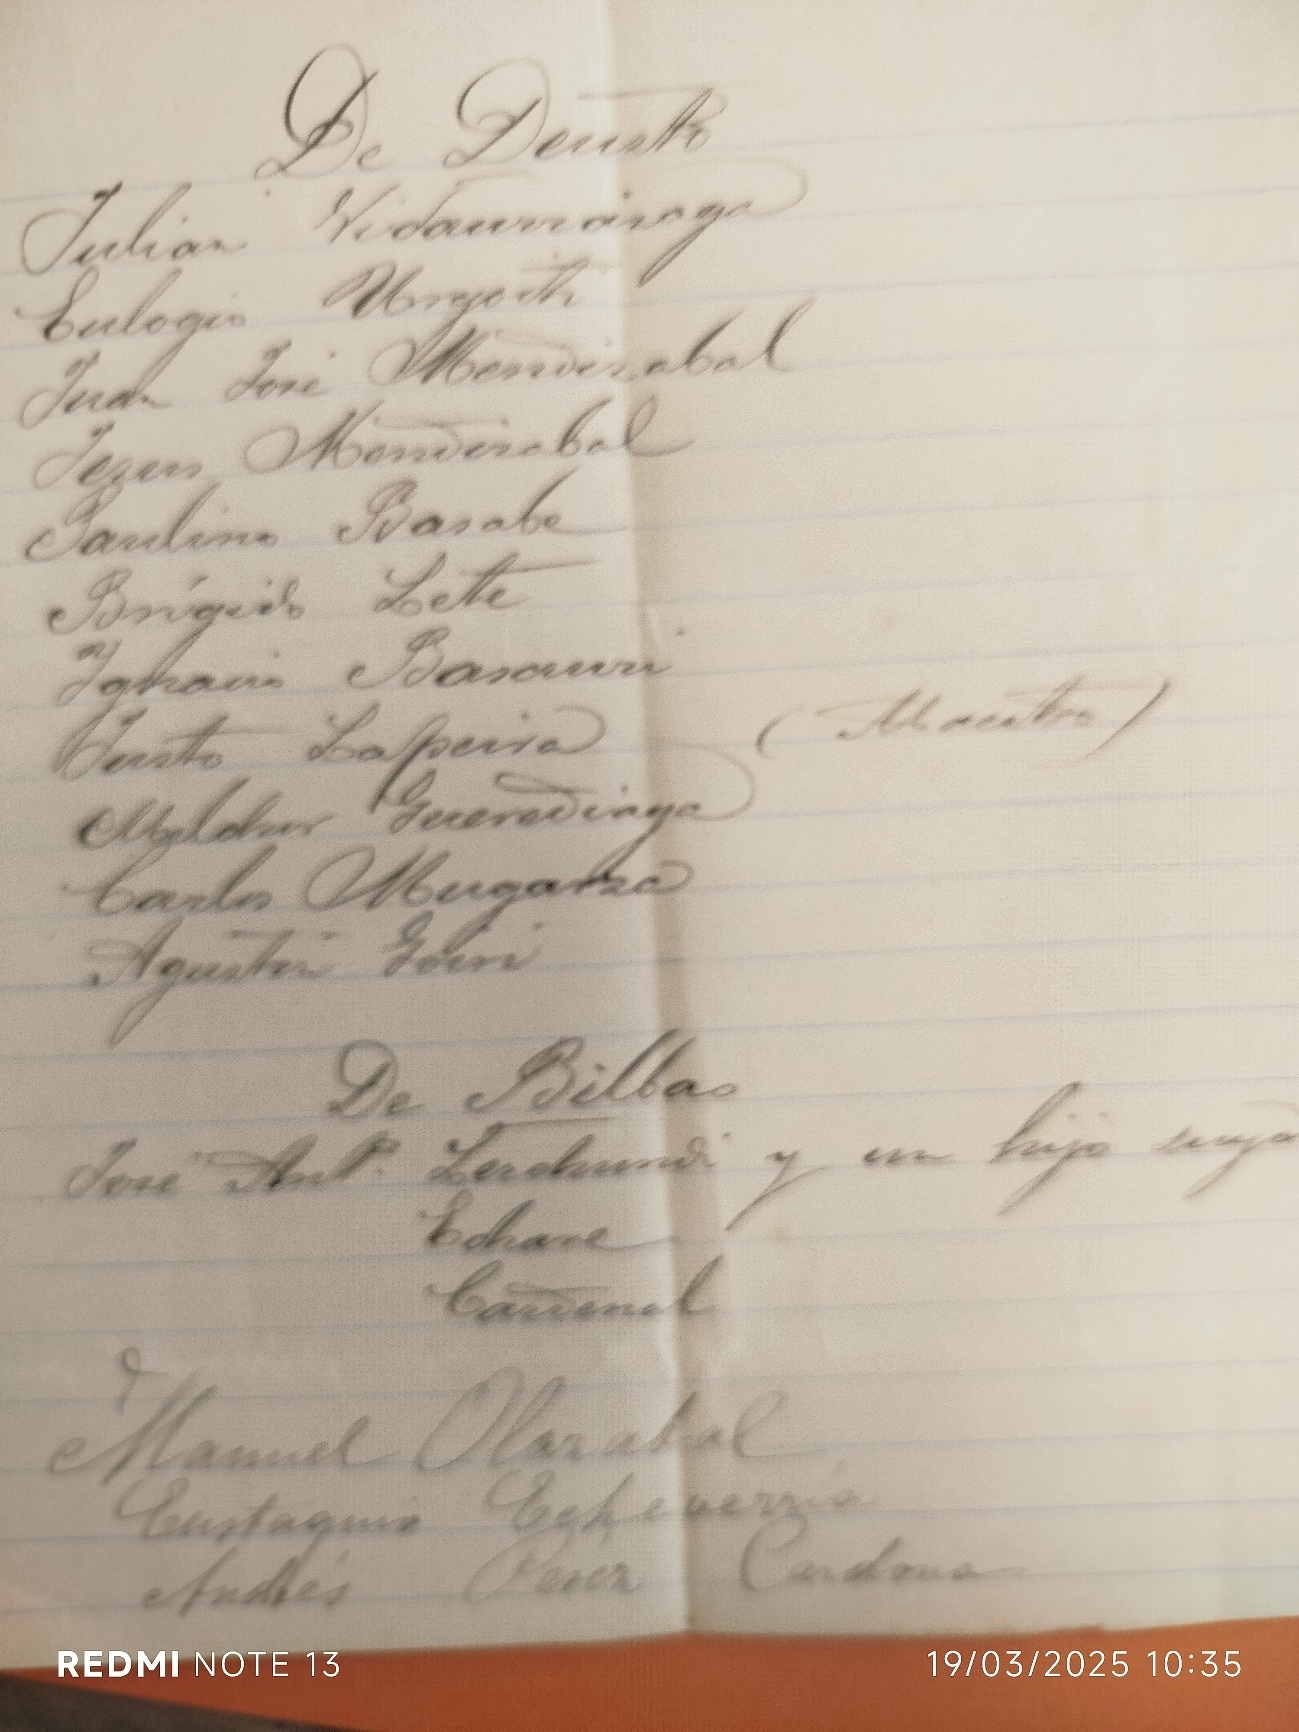 De Deusto
Julian Vidaurrázaga
Eulogio Urgoiti
Juan José Mendizabal
Jesus Mendizabal
Paulino Basabe
Brígido Lete
Ignacio Basauri
Justo Lapeira (Maestro)
Melchor Guerediaga
Carlos Mugarza
Agustín Goiri
De Bilbao
José Antº Lerchundi y un hijo suyo
Echave
Cardenal
Manuel Olazabal
Eustaquio Echeverría
Andrés Perez Cardona
REDMI NOTE 13
19/03/2025 10:35